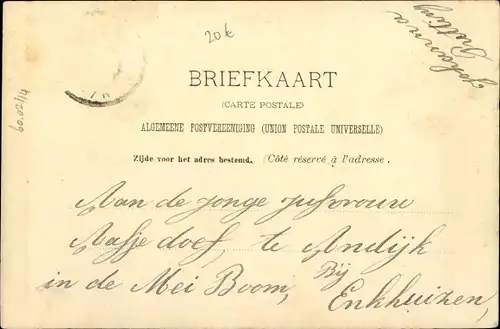 20€
Johanna
60.02/14
BRIEFKAART
(CARTE POSTALE)
ALGEMEENE POSTVEREENIGING (UNION POSTALE UNIVERSELLE)
Zijde voor het adres bestemd. (Côté réservé à l'adresse.
Aan de jonge Jufvrouw
Aafje doef, te Andijk
in de Mei Boom, Bij
Enkhuizen,